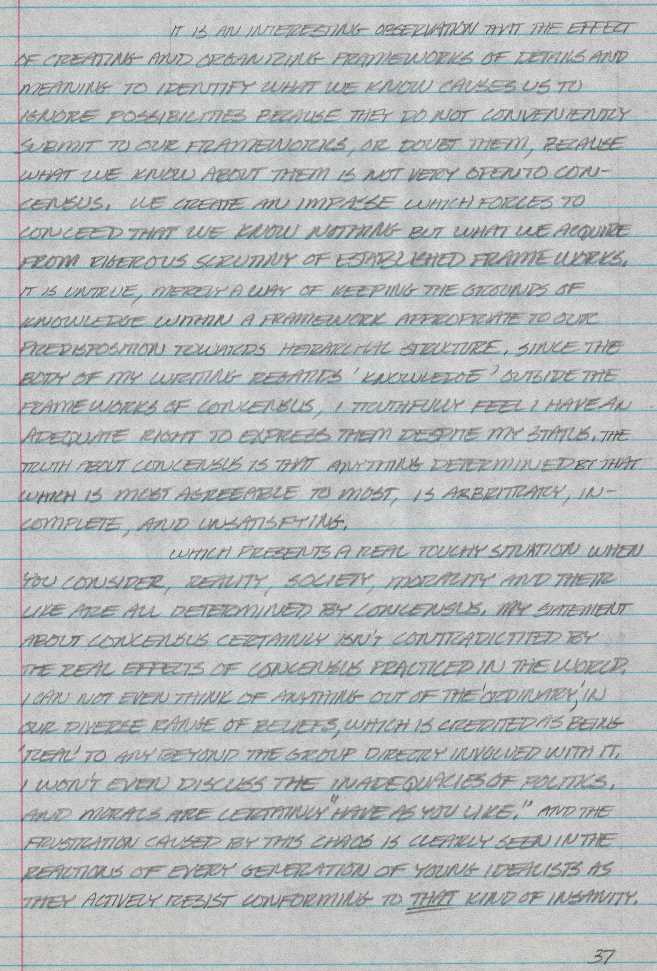 IT IS AN INTERESTING OBSERVATION THAT THE EFFECT
OF CREATING AND ORGANIZING FRAMEWORKS OF DETAILS AND
MEANING TO IDENTIFY WHAT WE KNOW CAUSES US TO
IGNORE POSSIBILITIES BECAUSE THEY DO NOT CONVENIENTLY
SUBMIT TO OUR FRAMEWORKS, OR DOUBT THEM, BECAUSE
WHAT WE KNOW ABOUT THEM IS NOT VERY OPEN TO CON-
CENSUS. WE CREATE AN IMPASSE WHICH FORCES TO
CONCEED THAT WE KNOW NOTHING BUT WHAT WE ACQUIRE
FROM RIGEROUS SCRUTINY OF ESTABLISHED FRAMEWORKS.
IT IS UNTRUE, MERELY A WAY OF KEEPING THE GROUNDS OF
KNOWLEDGE WITHIN A FRAMEWORK APPROPRIATE TO OUR
PREDISPOSITION TOWARDS HEIRARCHAL STRUCTURE. SINCE THE
BODY OF MY WRITING REGARDS 'KNOWLEDGE' OUTSIDE THE
FRAMEWORKS OF CONCENSUS, I TRUTHFULLY FEEL I HAVE AN
ADEQUATE RIGHT TO EXPRESS THEM DESPITE MY STATUS. THE
TRUTH ABOUT CONCENSUS IS THAT ANYTHING DETERMINED BY THAT
WHICH IS MOST AGREEABLE TO MOST, IS ARBRITRARY, IN-
COMPLETE, AND UNSATISFYING.
WHICH PRESENTS A REAL TOUCHY SITUATION WHEN
YOU CONSIDER, REALITY, SOCIETY, MORALITY AND THEIR
LIKE ARE ALL DETERMINED BY CONCENSUS. MY STATEMENT
ABOUT CONCENSUS CERTAINLY ISN'T CONTRADICTITED BY
THE REAL EFFECTS OF CONCENSUS PRACTICED IN THE WORLD.
I CAN NOT EVEN THINK OF ANYTHING OUT OF THE 'ORDINARY,' IN
OUR DIVERSE RANGE OF BELIEFS, WHICH IS CREDITED AS BEING
'REAL' TO ANY BEYOND THE GROUP DIRECTLY INVOLVED WITH IT.
I WON'T EVEN DISCUSS THE INADEQUACIES OF POLITICS.
AND MORALS ARE CERTAINLY "HAVE AS YOU LIKE." AND THE
FRUSTRATION CAUSED BY THIS CHAOS IS CLEARLY SEEN IN THE
REACTIONS OF EVERY GENERATION OF YOUNG IDEALISTS AS
THEY ACTIVELY RESIST CONFORMING TO THAT KIND OF INSANITY.
37